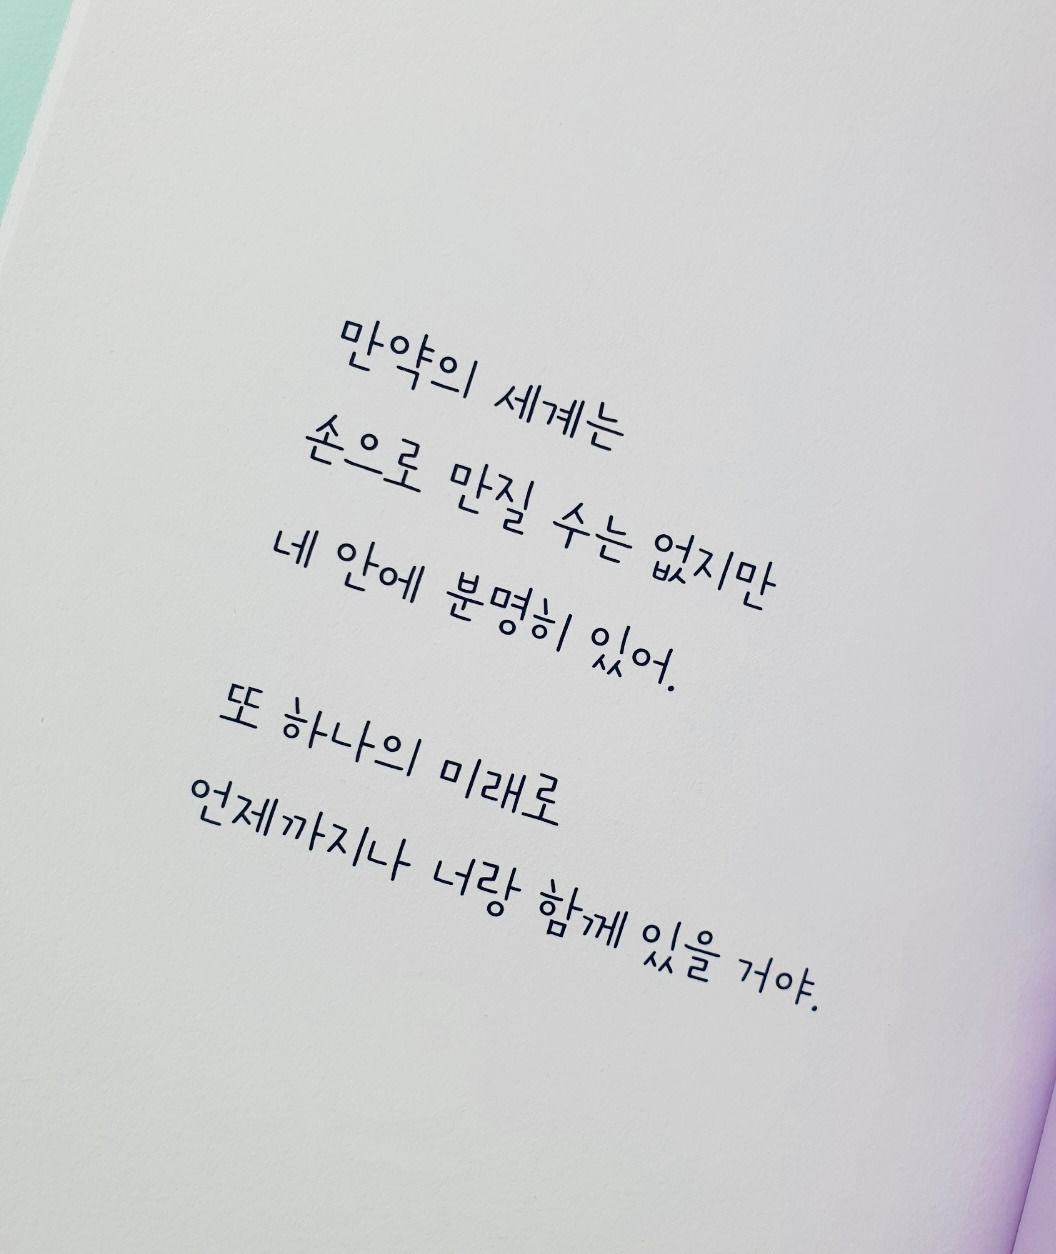 만약의 세계는
손으로 만질 수는 없지만
네 안에 분명히 있어.
또 하나의 미래로
언제까지나 너랑 함께 있을 거야.